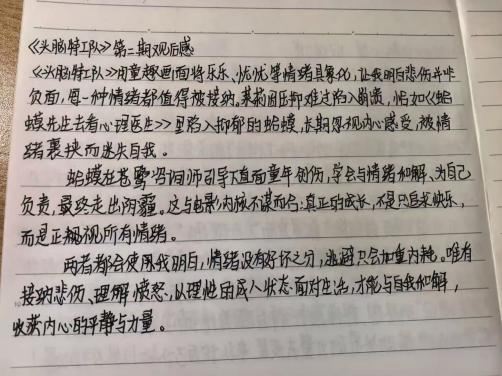 《头脑特工队》第二期观后感
《头脑特工队》用童趣画面将乐乐、忧忧等情绪具象化，让我明白悲伤并非
负面，每一种情绪都值得被接纳。莱莉因压抑难过陷入崩溃，恰如《蛤
蟆先生去看心理医生》里陷入抑郁的蛤蟆，长期忽视内心感受，被情
绪裹挟而迷失自我。
蛤蟆在苍鹭咨询师引导下直面童年创伤，学会与情绪和解、为自己
负责，最终走出阴霾。这与电影内核不谋而合：真正的成长，不是只追求快乐，
而是正视所有情绪。
两者都会使我明白，情绪没有好坏之分，逃避只会加重内耗。唯有
接纳悲伤、理解愤怒，以理性的成人状态面对生活，才能与自我和解，
收获内心的平静与力量。